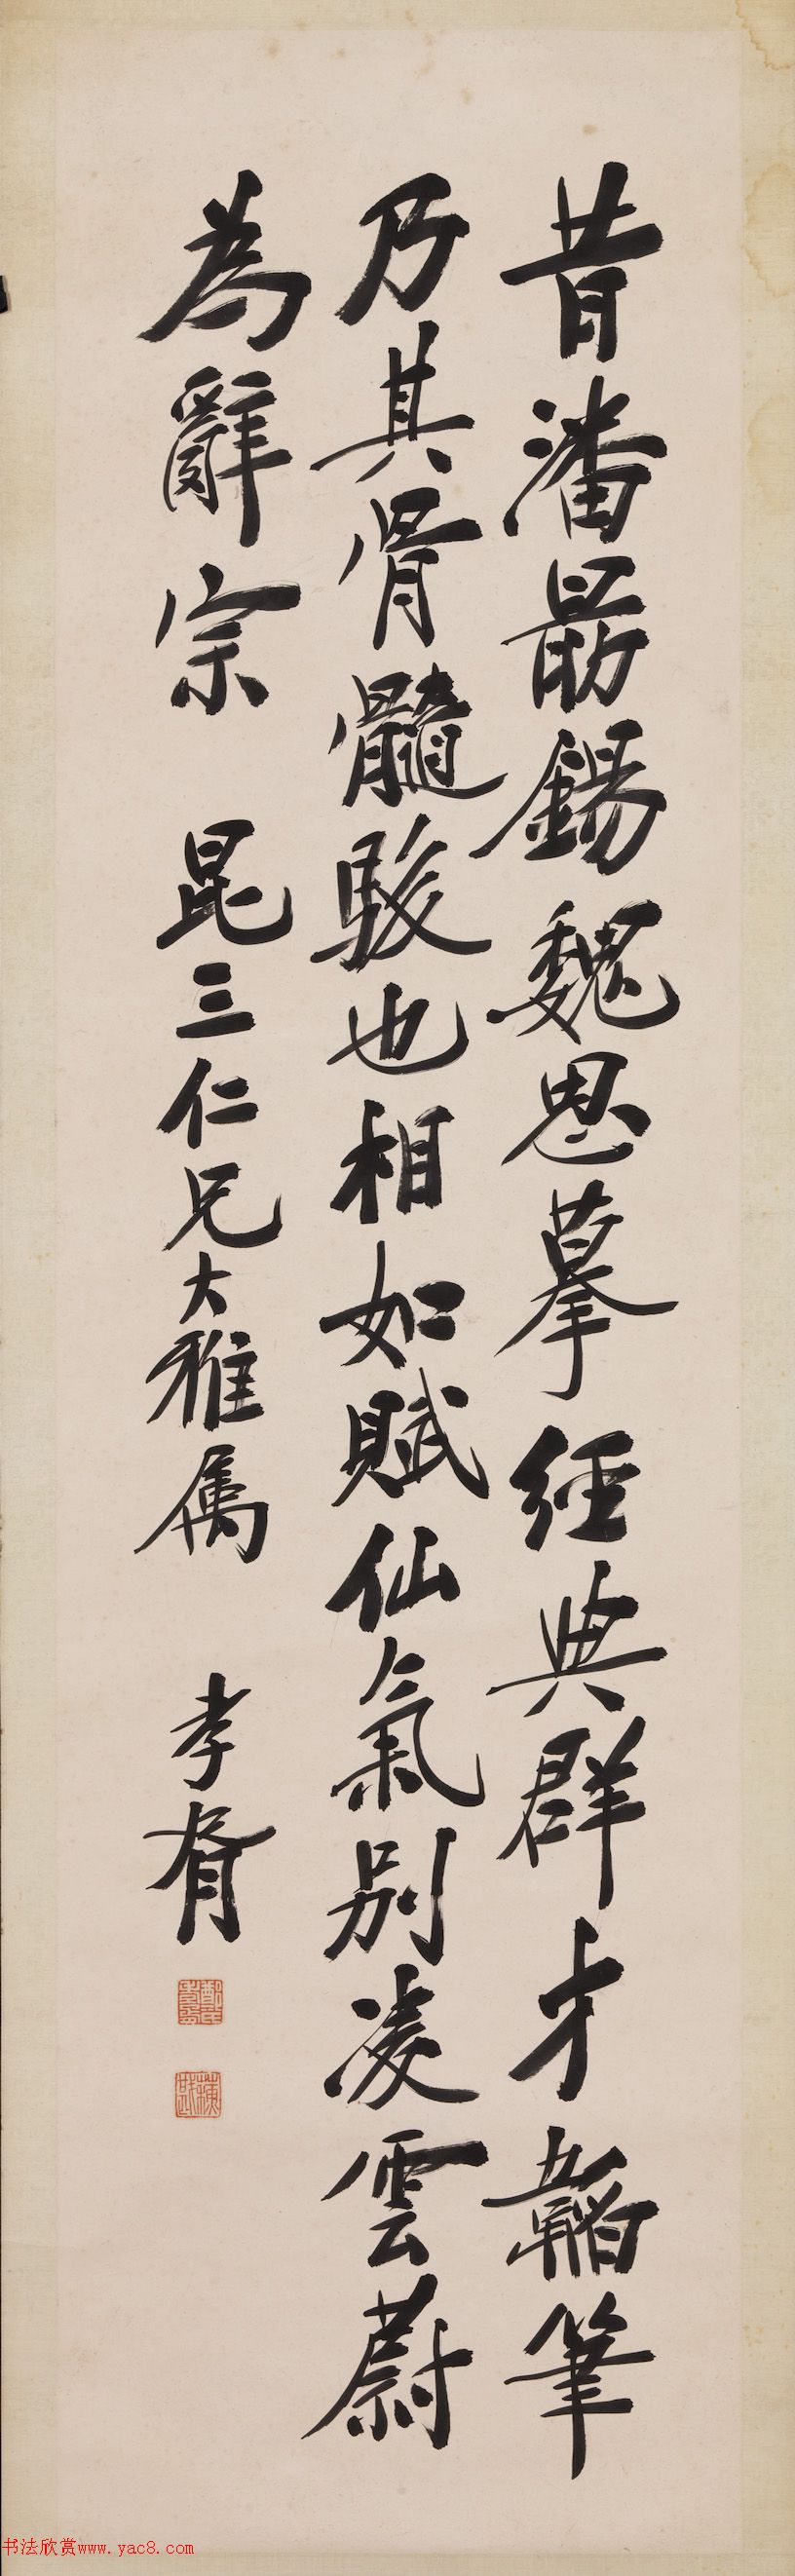 昔潘勗錫魏思摹經典群才韜筆
乃其骨髓駿也相如賦仙氣別凌雲蔚
為辭宗 昆三仁兄大雅属 孝胥
书法欣赏www.yac8.com